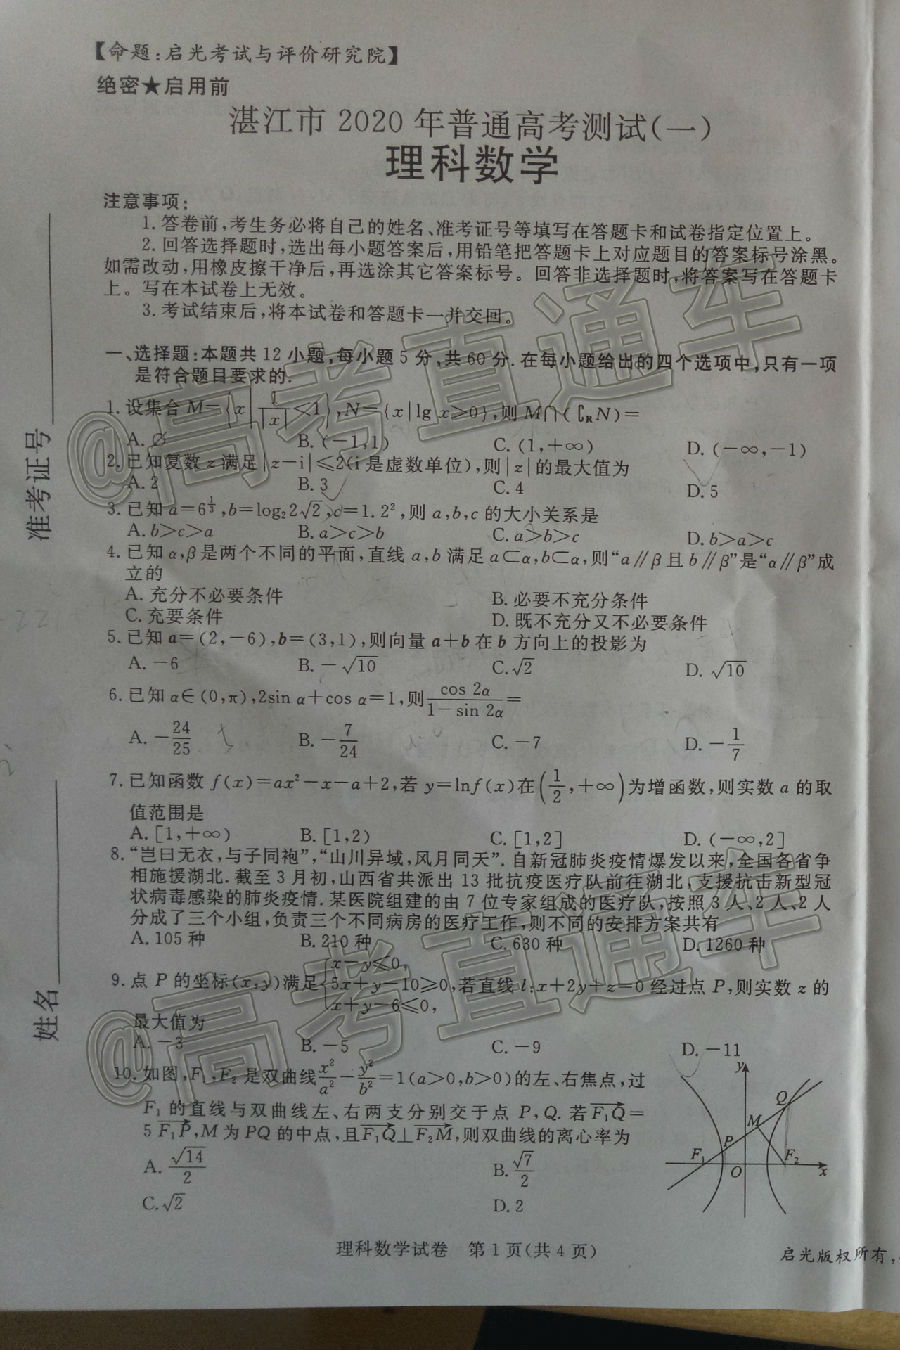 【命题:启光考试与评价研究院】
绝密★启用前
湛江市 2020 年普通高考测试(一)
理科数学
注意事项:
1. 答卷前,考生务必将自己的姓名、准考证号等填写在答题卡和试卷指定位置上。
2. 回答选择题时,选出每小题答案后,用铅笔把答题卡上对应题目的答案标号涂黑。
如需改动,用橡皮擦干净后,再选涂其它答案标号。回答非选择题时,将答案写在答题卡
上。写在本试卷上无效。
3. 考试结束后,将本试卷和答题卡一并交回。
一、选择题:本题共 12 小题,每小题 5 分,共 60 分. 在每小题给出的四个选项中,只有一项
是符合题目要求的.
1. 设集合 M={x | 1/|x| <1},N={x|lg x≥0},则 M∩(∁RN)=
A. ∅ B. (-1,1) C. (1,+∞) D. (-∞,-1)
2. 已知复数 z 满足|z-i|≤2(i 是虚数单位),则|z|的最大值为
A. 2 B. 3 C. 4 D. 5
3. 已知 a=6^(1/3),b=log₂2√2,c=1.2²,则 a,b,c 的大小关系是
A. b>c>a B. a>c>b C. a>b>c D. b>a>c
4. 已知 α,β 是两个不同的平面,直线 a,b 满足 a⊂α,b⊂α,则“a∥β 且 b∥β”是“α∥β”成
立的
A. 充分不必要条件 B. 必要不充分条件
C. 充要条件 D. 既不充分又不必要条件
5. 已知 a=(2,-6),b=(3,1),则向量 a+b 在 b 方向上的投影为
A. -6 B. -√10 C. √2 D. √10
6. 已知 α∈(0,π),2sin α+cos α=1,则 cos 2α/(1-sin 2α)=
A. -24/25 B. -7/24 C. -7 D. -1/7
7. 已知函数 f(x)=ax²-x-a+2,若 y=lnf(x)在(1/2,+∞)为增函数,则实数 a 的取
值范围是
A. [1,+∞) B. [1,2) C. [1,2] D. (-∞,2]
8. “岂曰无衣,与子同袍”,“山川异域,风月同天”. 自新冠肺炎疫情爆发以来,全国各省争
相施援湖北. 截至 3 月初,山西省共派出 13 批抗疫医疗队前往湖北,支援抗击新型冠
状病毒感染的肺炎疫情. 某医院组建的由 7 位专家组成的医疗队,按照 3 人、2 人、2 人
分成了三个小组,负责三个不同病房的医疗工作,则不同的安排方案共有
A. 105 种 B. 210 种 C. 630 种 D. 1260 种
9. 点 P 的坐标(x,y)满足{x-y≤0, 5x+y-10≥0, x+y-6≤0, 若直线 l:x+2y+z=0 经过点 P,则实数 z 的
最大值为
A. -3 B. -5 C. -9 D. -11
10. 如图,F₁,F₂ 是双曲线 x²/a²-y²/b²=1(a>0,b>0)的左、右焦点,过
F₁ 的直线与双曲线左、右两支分别交于点 P,Q. 若 F₁Q=
5 F₁P,M 为 PQ 的中点,且 F₁Q⊥F₂M,则双曲线的离心率为
A. √14/2 B. √7/2
C. √2 D. 2
y
Q
M
P
F₁
O
F₂
x
理科数学试卷 第 1 页(共 4 页)
启光版权所有,
准考证号
姓名
@高考直通车
@高考直通车